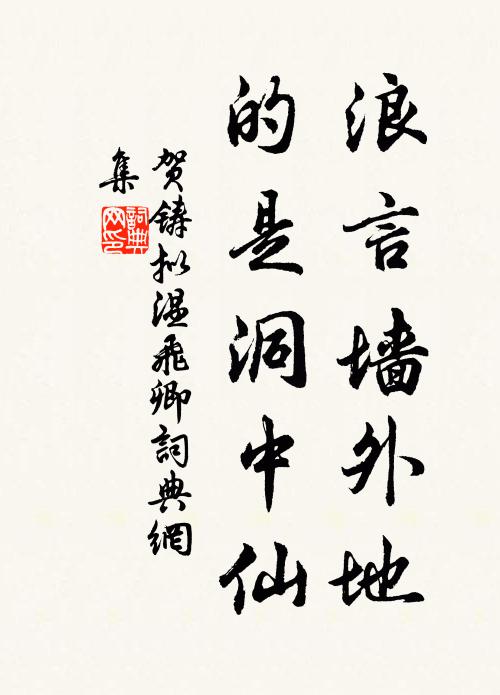 浪言墙外地
的是洞中仙
贺铸拟温飛卿詞典網
集
詞典
网印